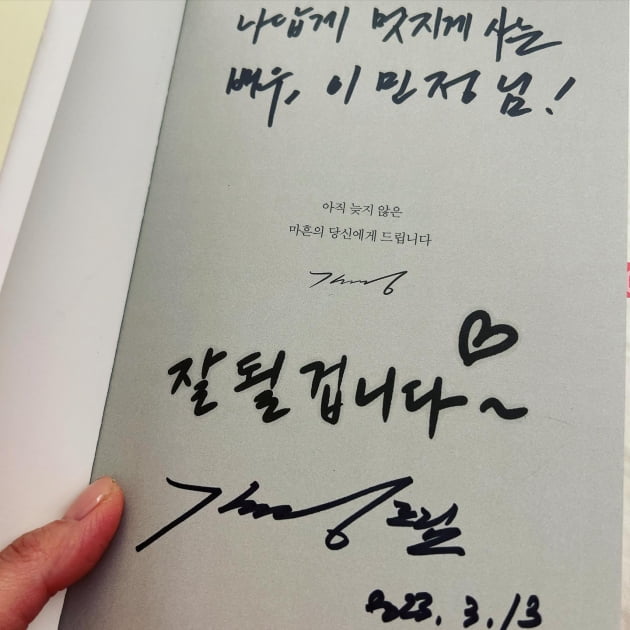 나답게 멋지게 사는
배우, 이민정님!
아직 늦지 않은
마흔의 당신에게 드립니다
잘 될 겁니다~
드림
2023. 3. 13